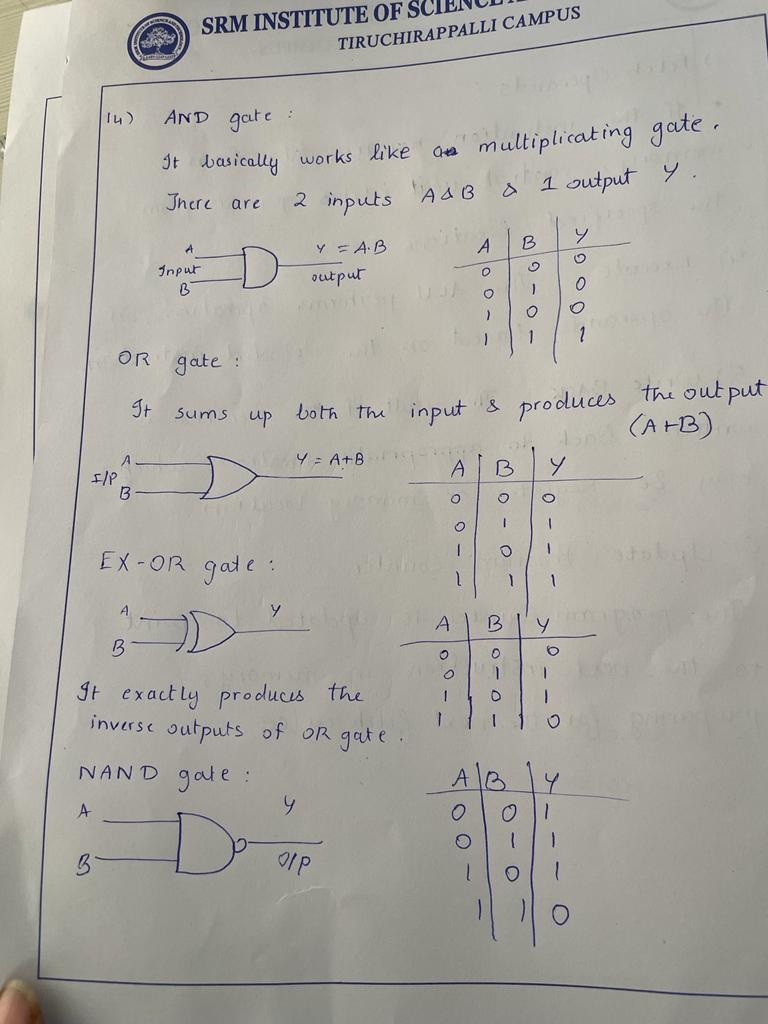 SRM INSTITUTE OF SCIENCE
TIRUCHIRAPPALLI CAMPUS
14) AND gate :
It basically works like a multiplicating gate.
There are 2 inputs A & B & 1 output Y.
A
Input
B
Y = A.B
output
A B Y
0 0 0
0 1 0
1 0 0
1 1 1
OR gate :
It sums up both the input & produces the output
(A+B)
I/P
A
B
Y = A+B
A B Y
0 0 0
0 1 1
1 0 1
1 1 1
EX-OR gate :
A
B
Y
A B Y
0 0 0
0 1 1
1 0 1
1 1 0
It exactly produces the
inverse outputs of OR gate.
NAND gate :
A
B
Y
O/P
A B Y
0 0 1
0 1 1
1 0 1
1 1 0